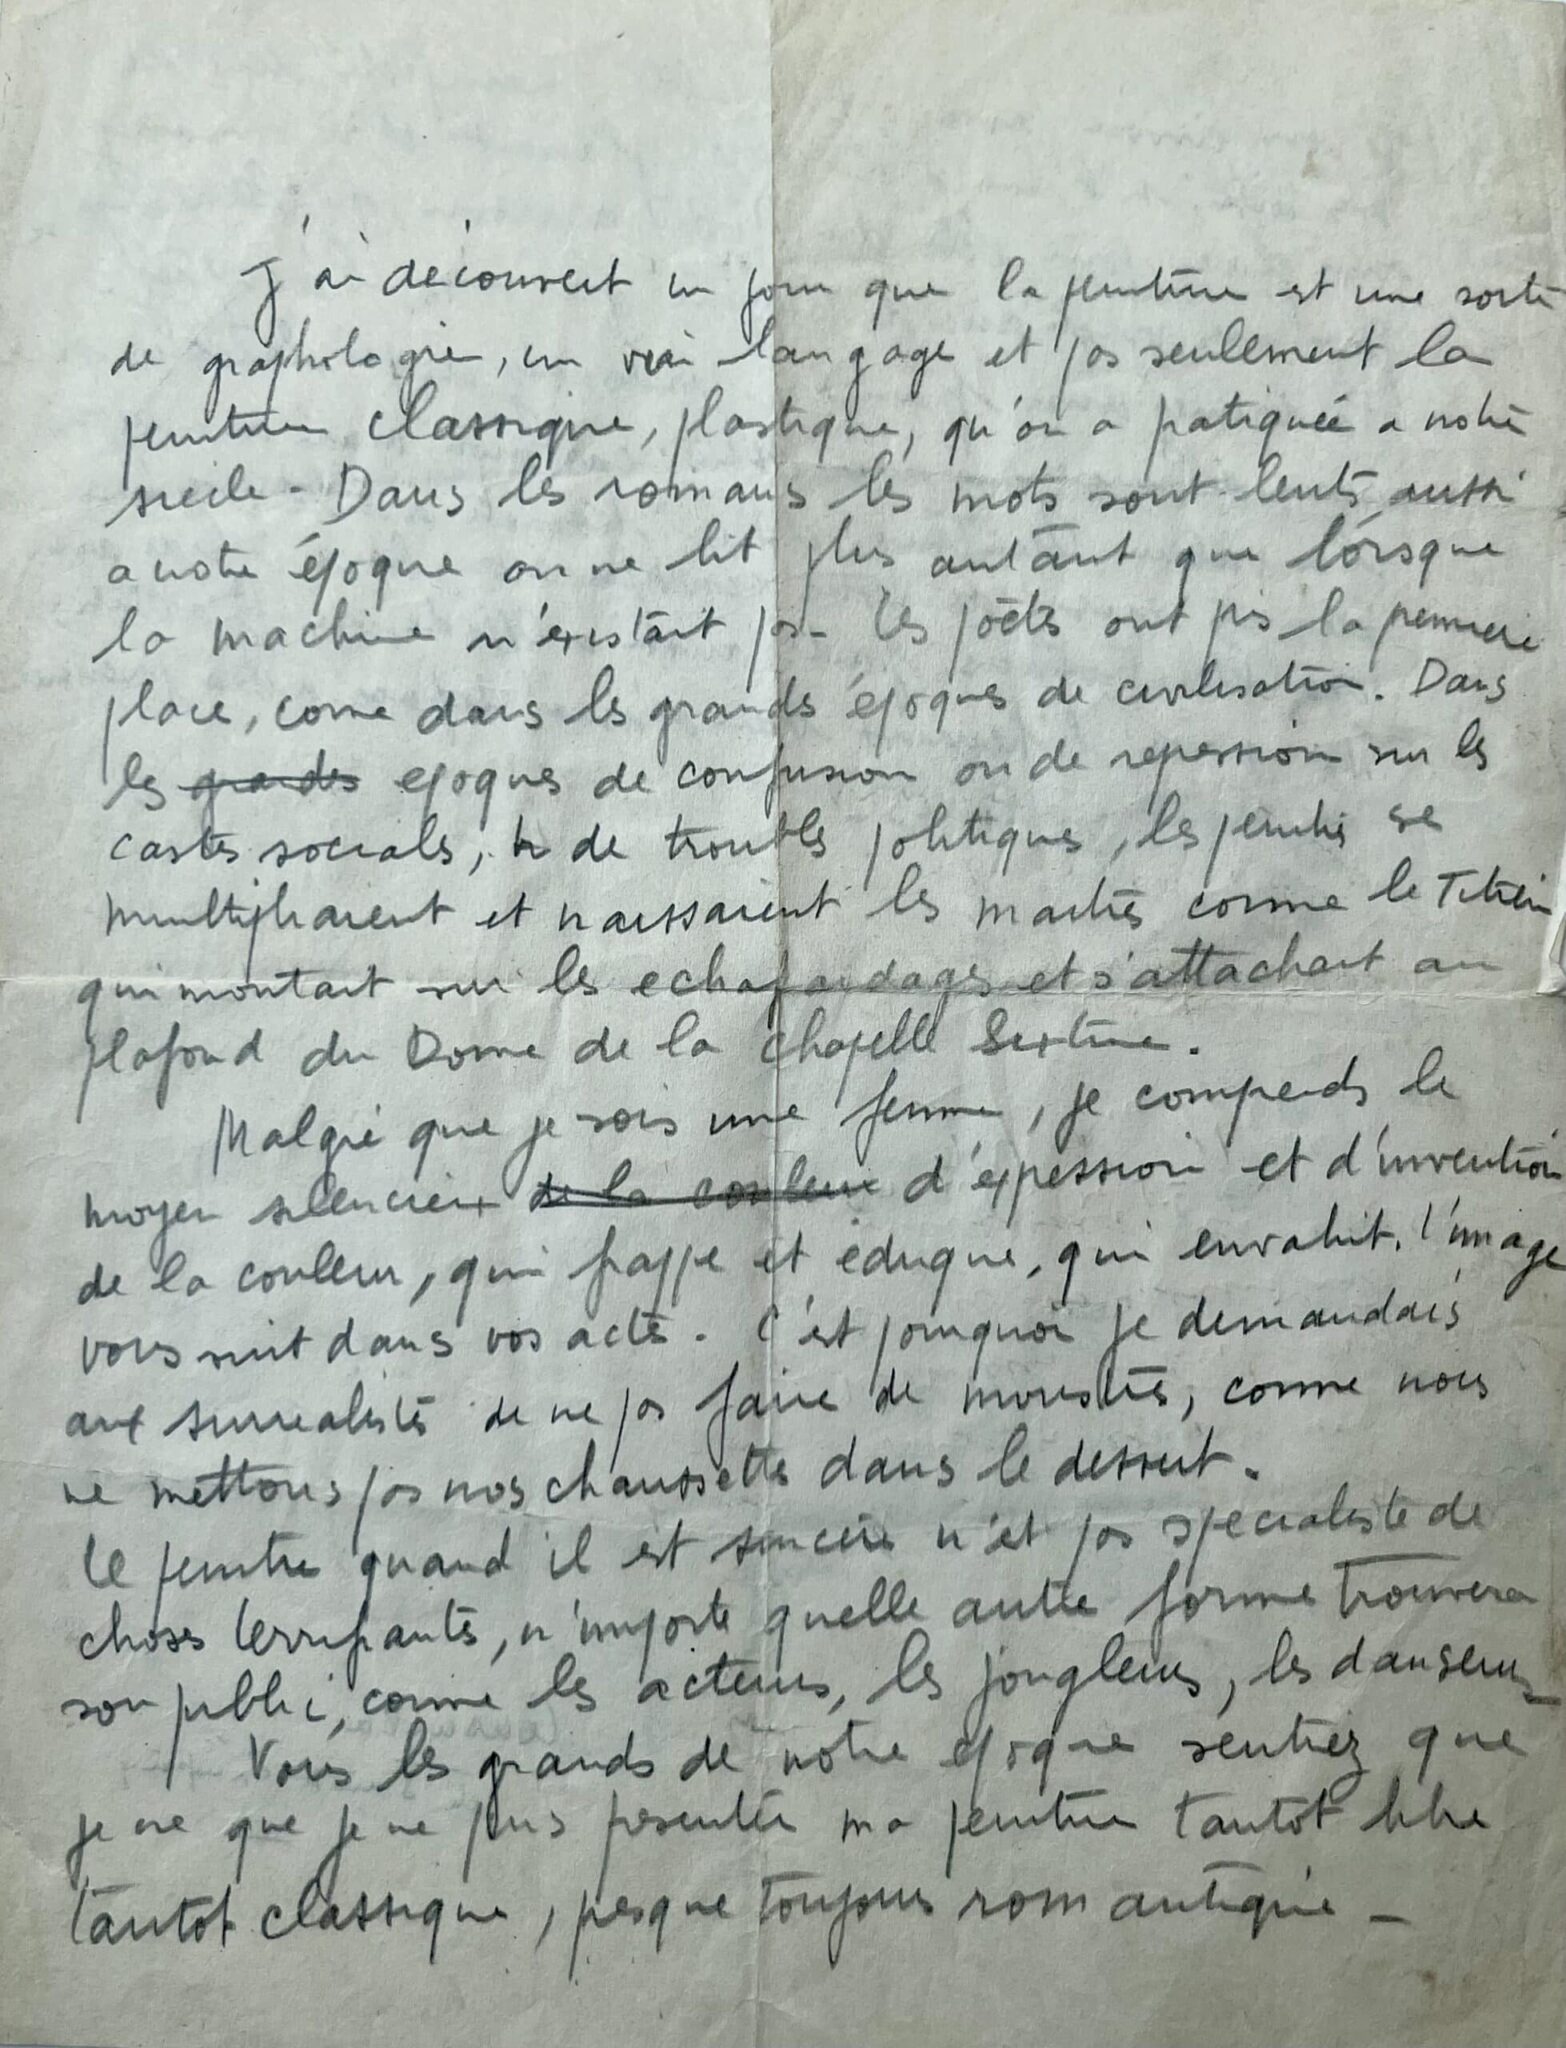 J'ai découvert un jour que la peinture est une sorte
de graphologie, un vrai langage et pas seulement la
peinture classique, plastique, qu'on a pratiquée a notre
siecle - Dans les romans les mots sont lents, aussi
a notre époque on ne lit plus autant que lorsque
la machine n'existait pas - Les poètes ont pris la premiere
place, come dans les grands époques de civilisation. Dans
les grandes epoques de confusion ou de repression sur les
castes sociales, de troubles politiques, les peintres se
multipliaient et naissaient les maitres comme le Titien
qui montait sur les echafaudages et s'attachait au
plafond du Dome de la chapelle Sixtine.
Malgré que je sois une femme, je comprends le
moyen silencieux de la couleur d'expression et d'invention
de la couleur, qui frappe et éduque, qui envahit. l'image
vous suit dans vos actes. C'est pourquoi je demandais
aux surrealistes de ne pas faire de monstres, comme nous
ne mettons pas nos chaussettes dans le dessert.
Le peintre quand il est sincère n'est pas specialiste de
choses terrifiantes, n'importe quelle autre forme trouvera
son public, comme les acteurs, les jongleurs, les danseurs
Vous les grands de notre epoque sentiez que
je ne que je ne puis presenter ma peinture tantot libre
tantot classique, presque toujours romantique -